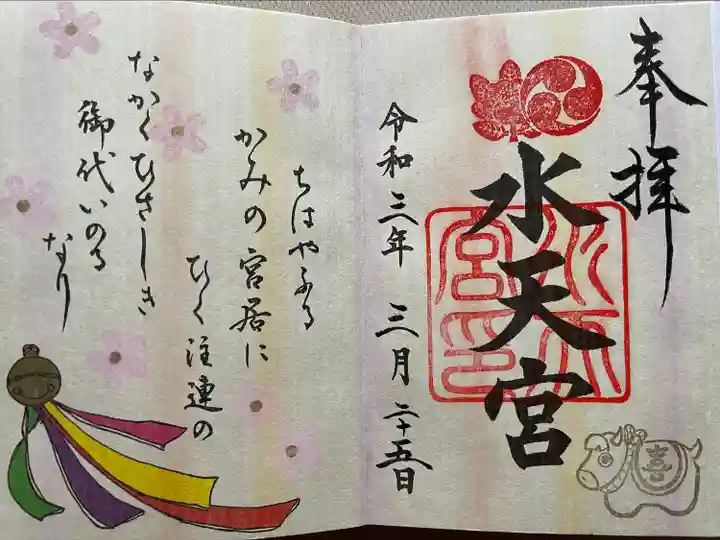 奉拝
水天宮
水天宮印
令和三年 三月二十五日
喜
ちはやふる
かみの宮居に
ひく注連の
なかくひさしき
御代いのる
なり